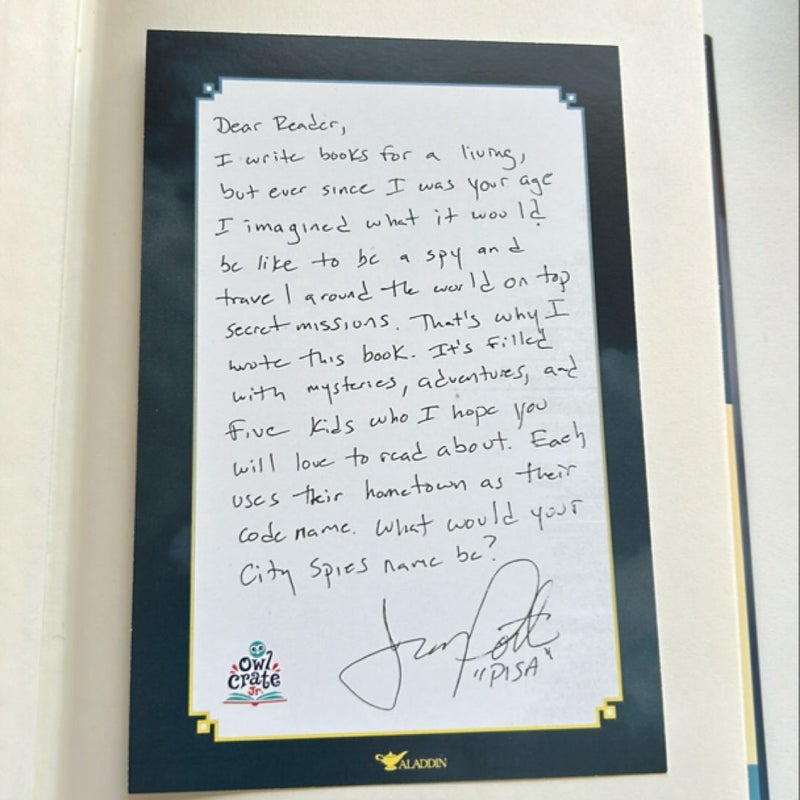 Dear Reader,
I write books for a living,
but ever since I was your age
I imagined what it would
be like to be a spy and
travel around the world on top
secret missions. That's why I
wrote this book. It's filled
with mysteries, adventures, and
five kids who I hope you
will love to read about. Each
uses their hometown as their
code name. What would your
City Spies name be?
"PISA"
OWL
CRATE
Jr.
ALADDIN